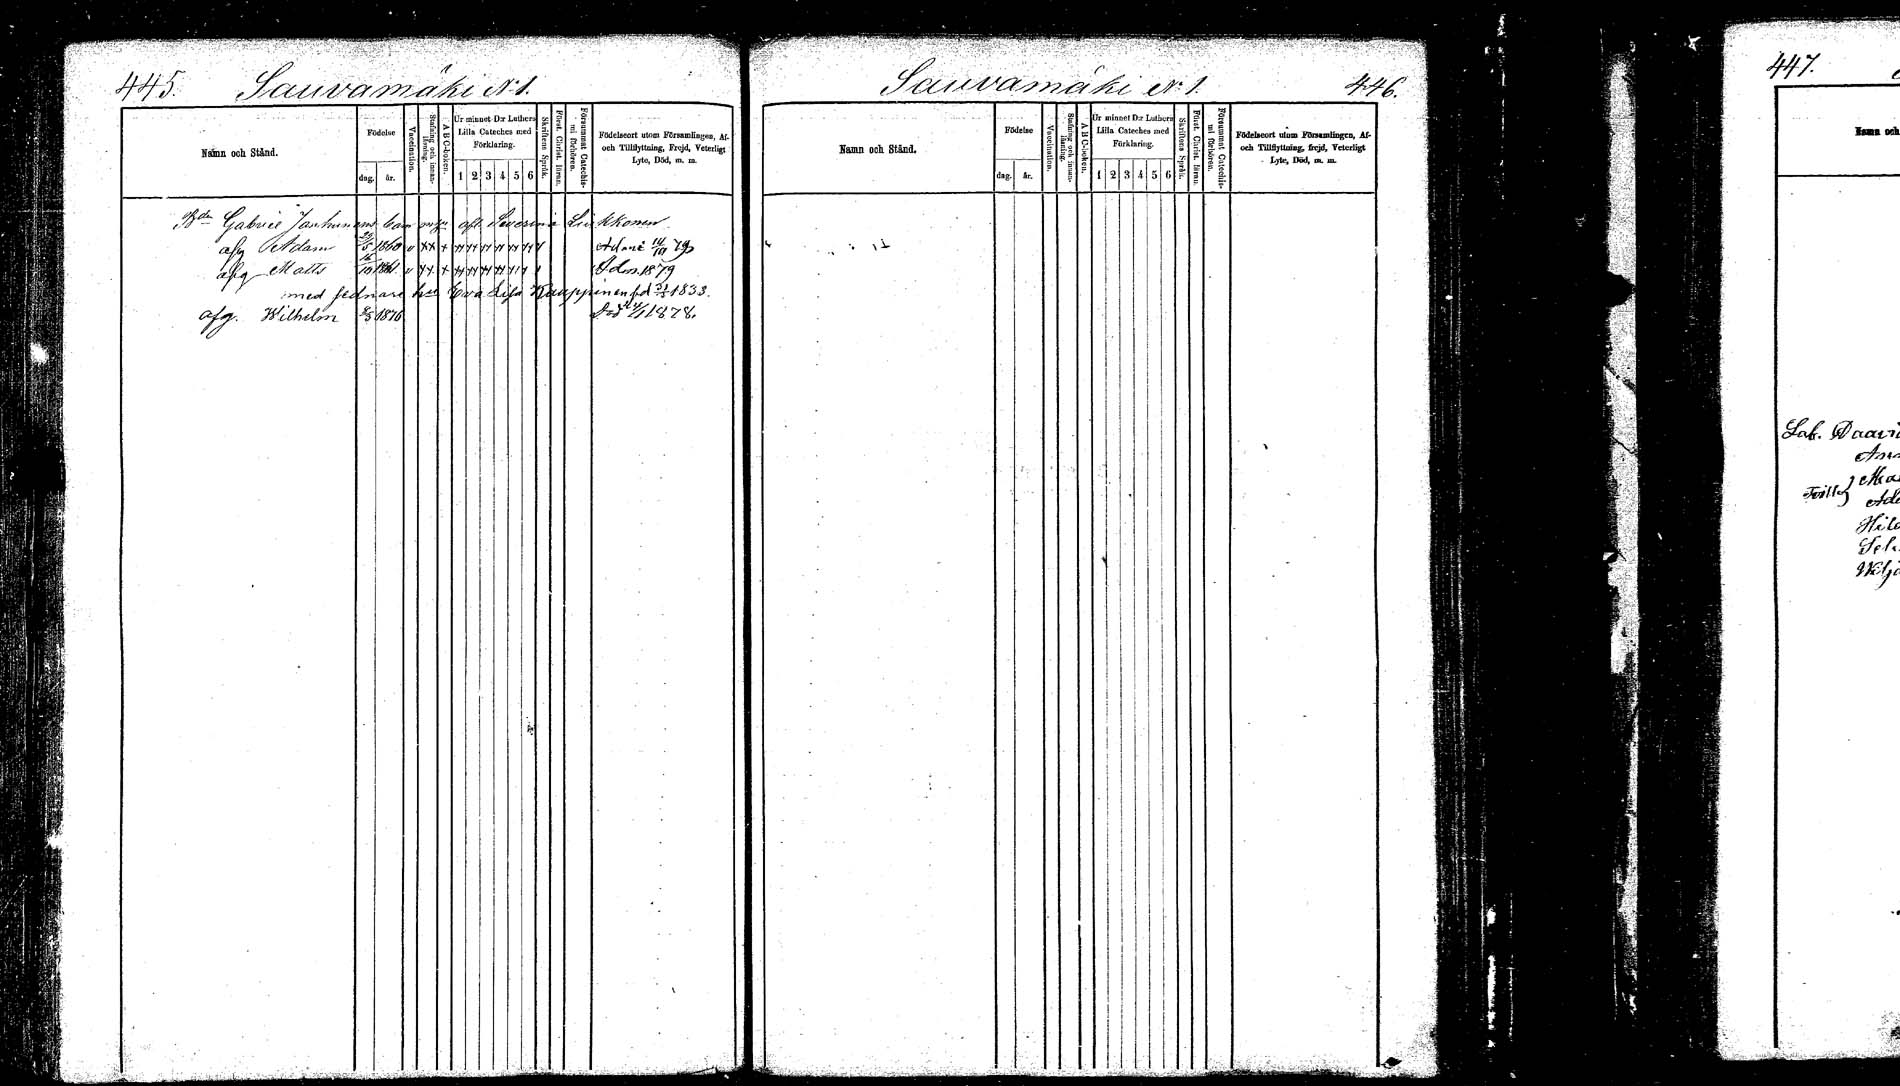 445. Sauvamäki N:1.
Namn och Stånd.
Födelse
dag.
år.
Vaccination.
Stafning och innanläsning.
A B C-boken.
Ur minnet D:r Luthers Lilla Cateches med Förklaring.
1 2 3 4 5 6
Skriftens Språk.
Först. Christ. läran.
Försummat Catechismi förhören.
Födelseort utom Församlingen, Af- och Tillflyttning, Frejd, Veterligt Lyte, Död, m. m.
Gabriel Janhunens barn aft. Severina Liukkonen
afg Adam 1860 v xx x Adm. 79
afg Matts 1861 v xx x Adm. 1879
med sednare hu Eva Lisa Kauppinen född 1833.
afg. Wilhelm 1876 Död 1878.
Sauvamäki N:1. 446.
Namn och Stånd.
Födelse
dag.
år.
Vaccination.
Stafning och innanläsning.
A B C-boken.
Ur minnet D:r Luthers Lilla Cateches med Förklaring.
1 2 3 4 5 6
Skriftens Språk.
Först. Christ. läran.
Försummat Catechismi förhören.
Födelseort utom Församlingen, Af- och Tillflyttning, frejd, Veterligt Lyte, Död, m. m.
447.
Namn och